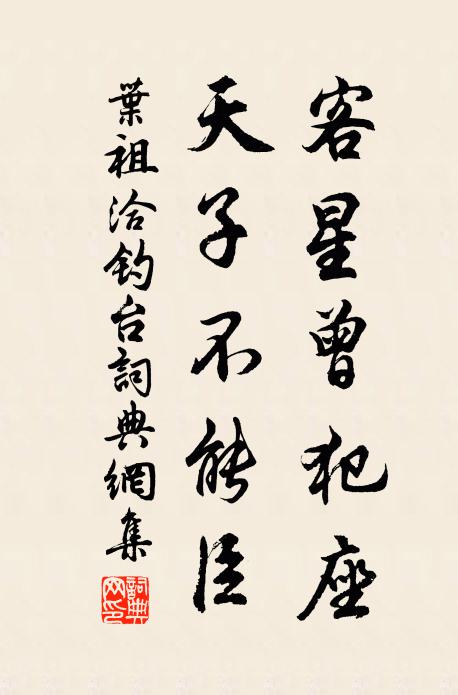 客星曾犯座
天子不能臣
葉祖洽釣台詞典網集
詞典网印